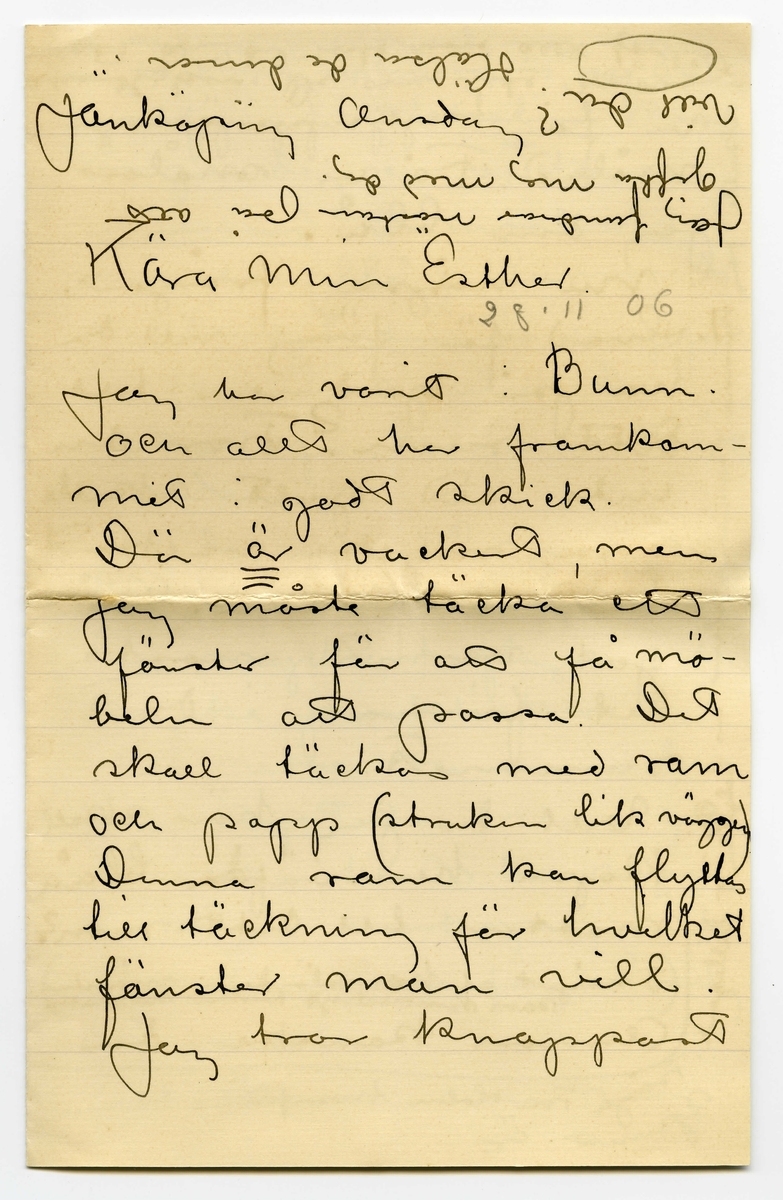 Jönköping Onsdag
Kära Min Esther.
28.11 06
Jag har varit i Bunn.
och allt har framkom-
mit i godt skick.
Där är vackert, men
jag måste täcka ett
fönster för att få mö-
beln att passa. Det
skall täckas med ram
och papp (struken lik väggen)
Denna ram kan flyttas
till täckning för hvilket
fönster man vill.
Jag tror knappast
Jag funderar nästan på att
gifta mej med dej.
Vill du? Hälsa de dina